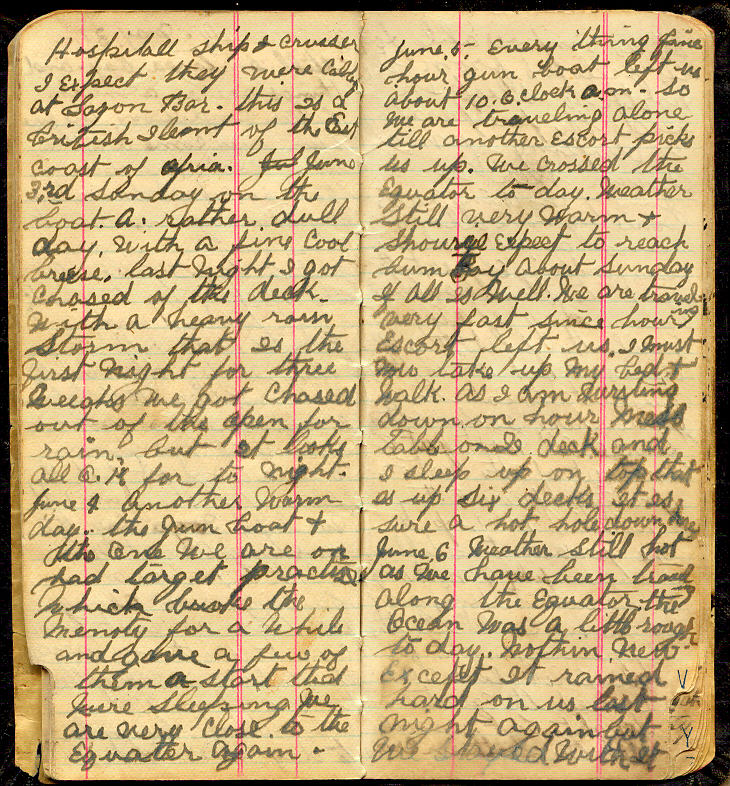 Hospitall ship & crusser
I Expect they were Calling
at Bar. this is a
British I leant of the Est
coast of June
3rd Sunday on the
boat. A. rather dull
day. with a fine cool
breese. last Night I got
chased of the deck.
with a heavy rain
Storm that is the
first Night for three
Weeghs we got chased
out of the open for
rain. but it looks
all O. K for to Night.
June 4 another warm
day. the gun boat &
the one we are on
had target practis
which the
Menoty for a while
and gave a few of
them a start that
were sleeping We
are very close to the
Equater again.
June. 5. Every thing fine
hour gun boat left us
about 10. O. clock a.m. so
we are traveling alone
till another Escort picks
us up. we crossed the
Equator to day. Weather
still very warm &
Expect to reach
bumBay about sunday
if all is well. we are traveling
very fast since hour
Escort left us. I must
take up my bed &
walk. as I am
down on hour mess
table on deck and
I sleep up on top that
is up six decks it is
sure a hot hole down
June 6 Weather still hot
as we have been
along the Equator the
Ocean was a little rough
to day. nothin New
Except it rained
hard on us last
night again but
we stayed with it